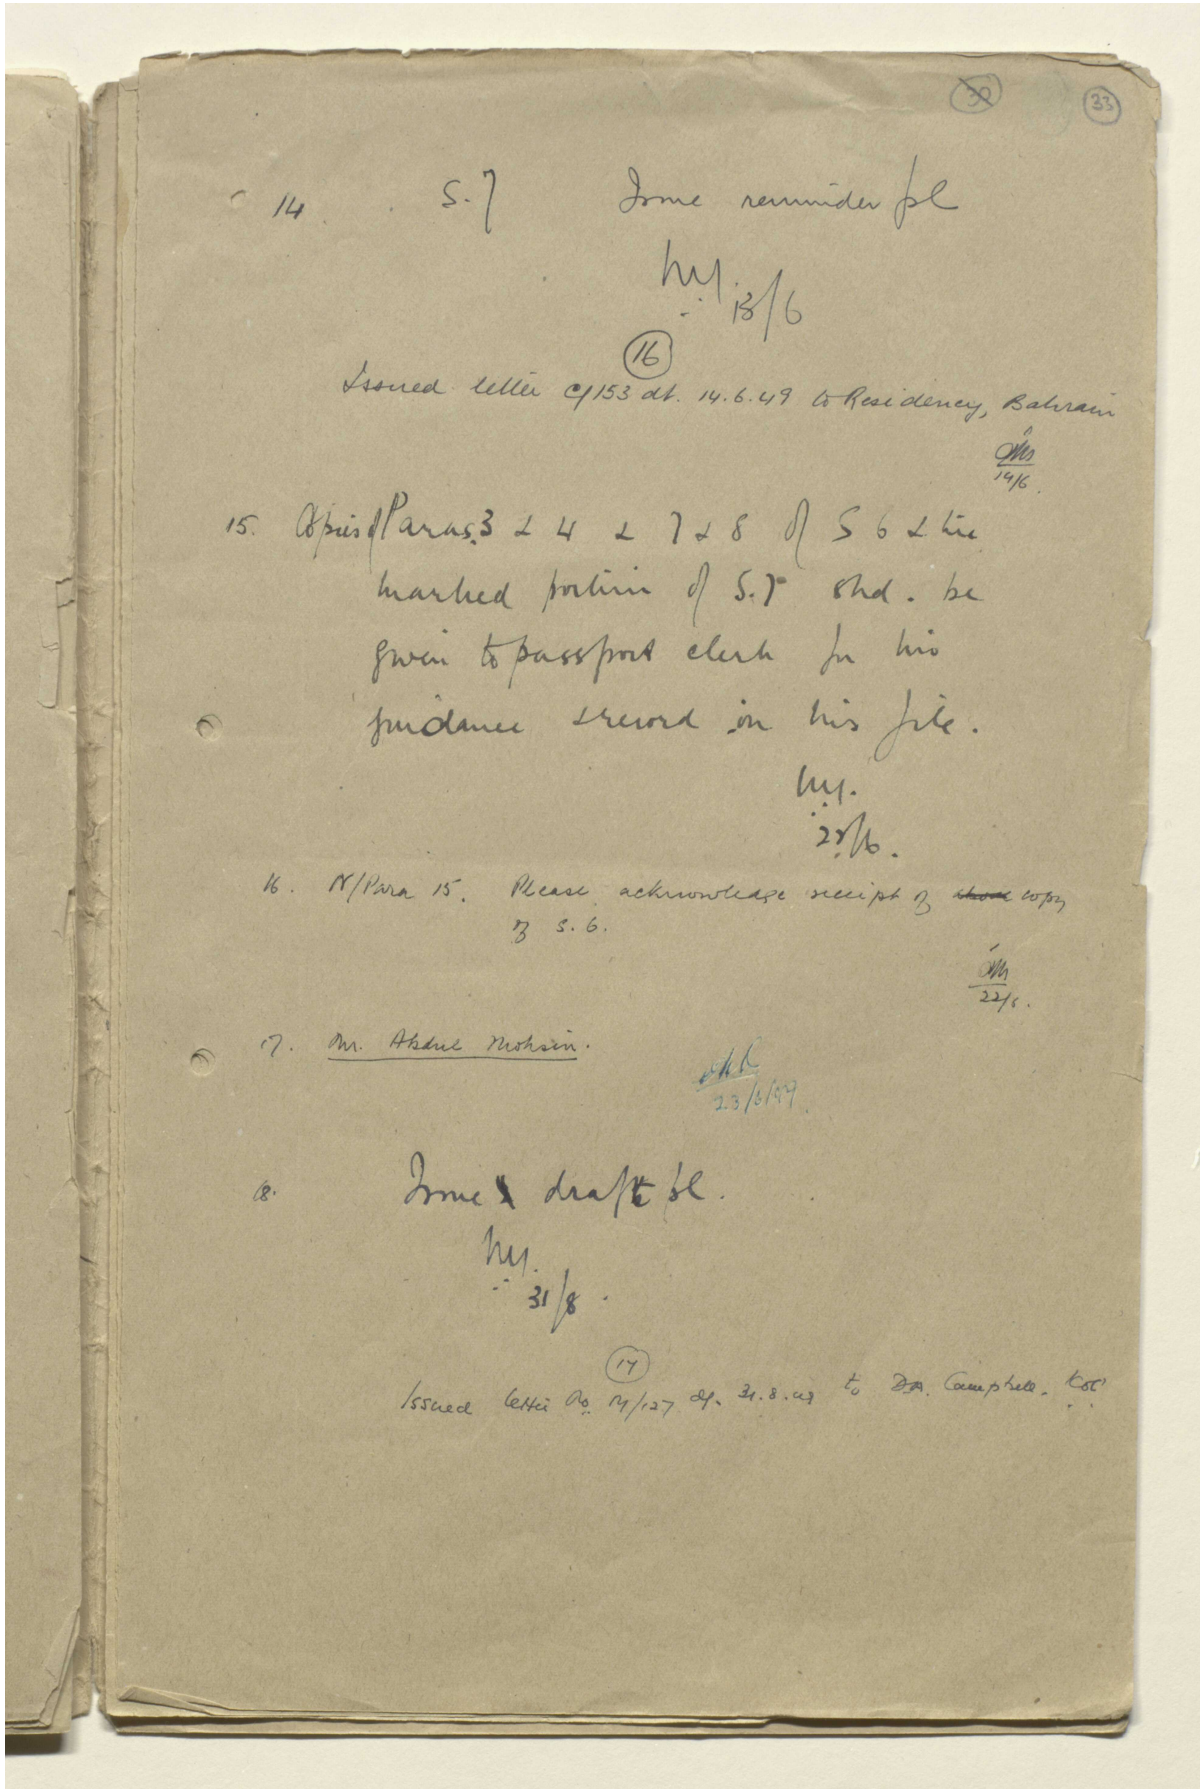 30 33
14. S.7 Issue reminder pl
13/6
16
Issued letter C/153 dt. 14.6.49 to Residency, Bahrain
14/6.
15. Copies of Paras. 3 & 4 & 7 & 8 of S 6 & the
marked portion of S.7 shd. be
given to passport clerk for his
guidance & record in his file.
22/6.
16. N/Para 15. Please acknowledge receipt of copy
of S. 6.
22/6.
17. Mr. Abdul Mohsin.
23/6/49
18. Issue draft pl.
31/8.
17
Issued letter No. M/127 dt. 31.8.49 to Dr. Campbell. KOC